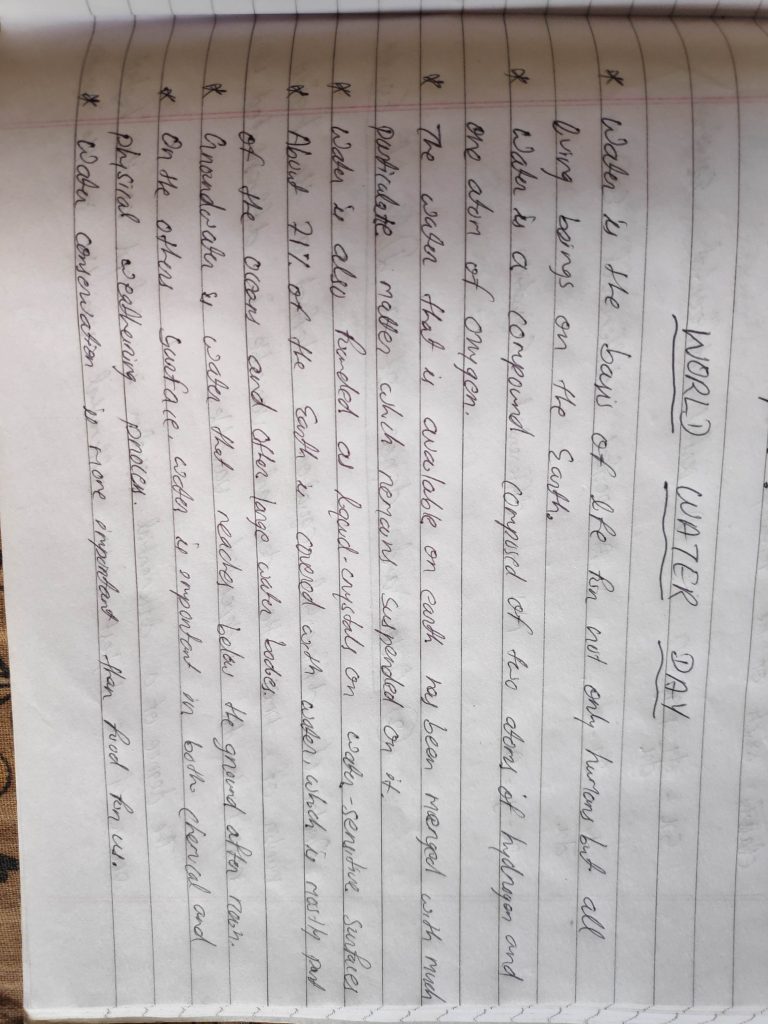 WORLD WATER DAY
* Water is the basis of life for not only humans but all
living beings on the Earth.
* Water is a compound composed of two atoms of hydrogen and
one atom of oxygen.
* The water that is available on earth has been merged with much
particulate matter which remains suspended on it.
* Water is also funded as liquid-crystals on water-sensitive surfaces
* About 71% of the Earth is covered with water, which is mostly part
of the ocean and other large water bodies.
* Groundwater is water that reaches below the ground after rain.
* On the other surface, water is important in both chemical and
physical weathering process.
* Water conservation is more important than food for us.